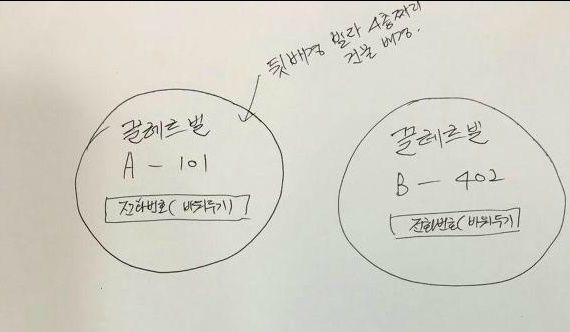 뒷배경 빌라 4층짜리
건물 배경.
끌레르빌
A - 101
전화번호( 바뀌두기)
끌레르빌
B - 402
전화번호(바뀌두기)